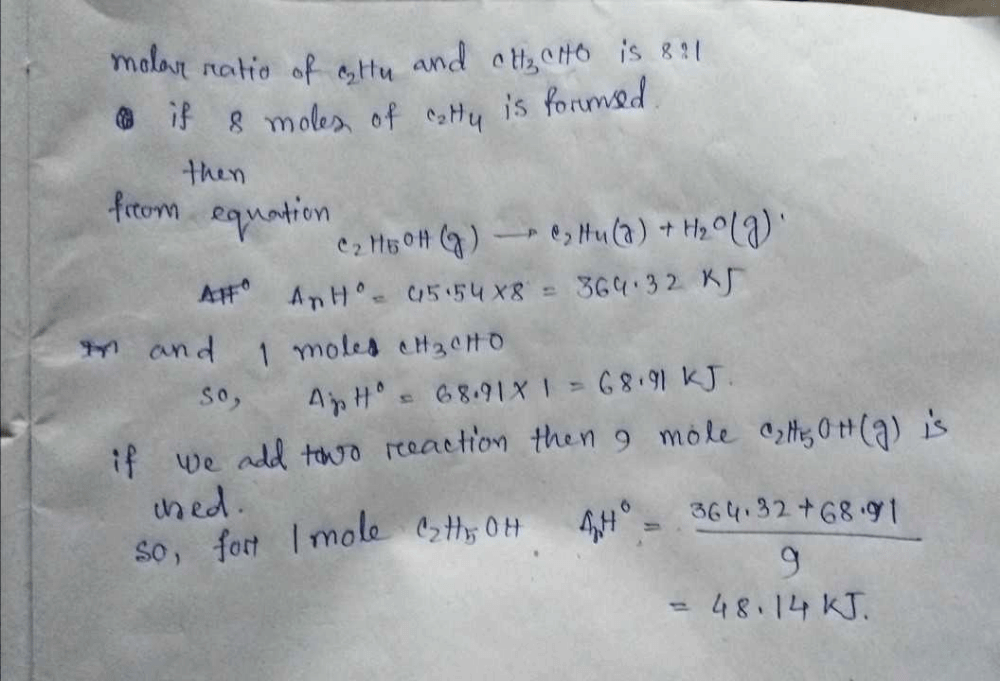 molar ratio of C2H4 and CH3CHO is 8:1
if 8 moles of C2H4 is formed.
then
from equation
C2H5OH (g) → C2H4(g) + H2O(g)
ΔH° ΔrH° = 45.54 x 8 = 364.32 KJ
and 1 moles CH3CHO
so, ΔrH° = 68.91 x 1 = 68.91 KJ.
if we add two reaction then 9 mole C2H5OH(g) is
used.
so, for 1 mole C2H5OH. ΔrH° = 364.32 + 68.91
9
= 48.14 KJ.